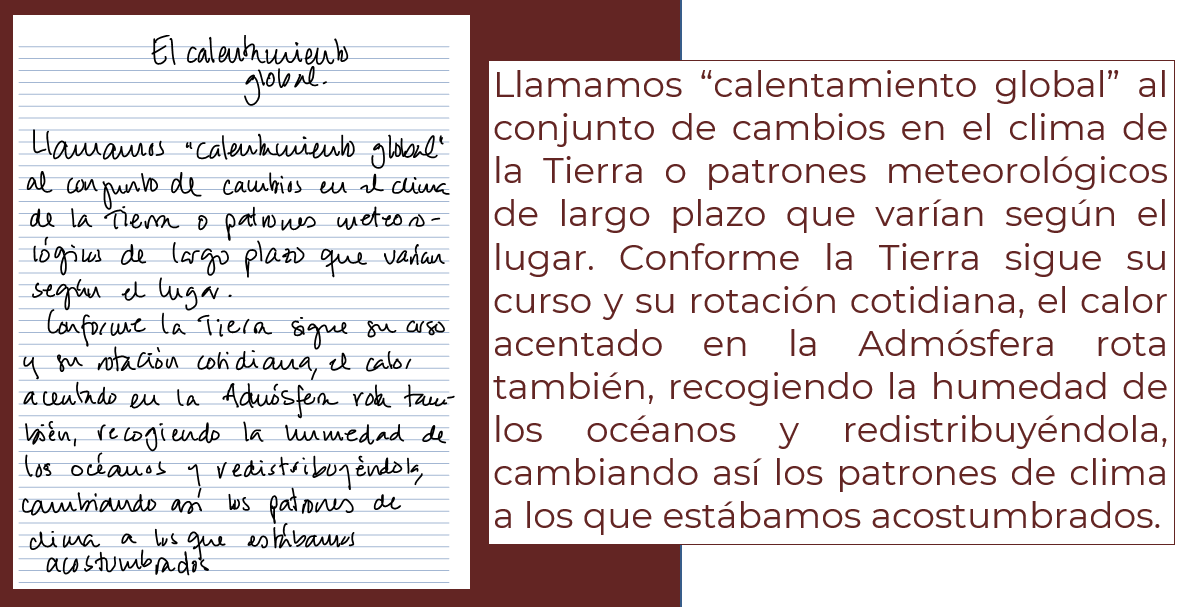 El calentamiento
global.
Llamamos "calentamiento global"
al conjunto de cambios en el clima
de la Tierra o patrones meteoro-
lógicos de largo plazo que varían
según el lugar.
Conforme la Tierra sigue su curso
y su rotación cotidiana, el calor
acentado en la Admósfera rota tam-
bién, recogiendo la humedad de
los océanos y redistribuyéndola,
cambiando así los patrones de
clima a los que estábamos
acostumbrados
Llamamos “calentamiento global” al
conjunto de cambios en el clima de
la Tierra o patrones meteorológicos
de largo plazo que varían según el
lugar. Conforme la Tierra sigue su
curso y su rotación cotidiana, el calor
acentado en la Admósfera rota
también, recogiendo la humedad de
los océanos y redistribuyéndola,
cambiando así los patrones de clima
a los que estábamos acostumbrados.